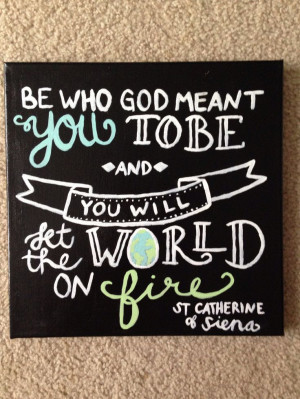 BE WHO GOD MEANT
you TO BE
AND
YOU WILL
set the WORLD
ON fire
ST CATHERINE
of Siena